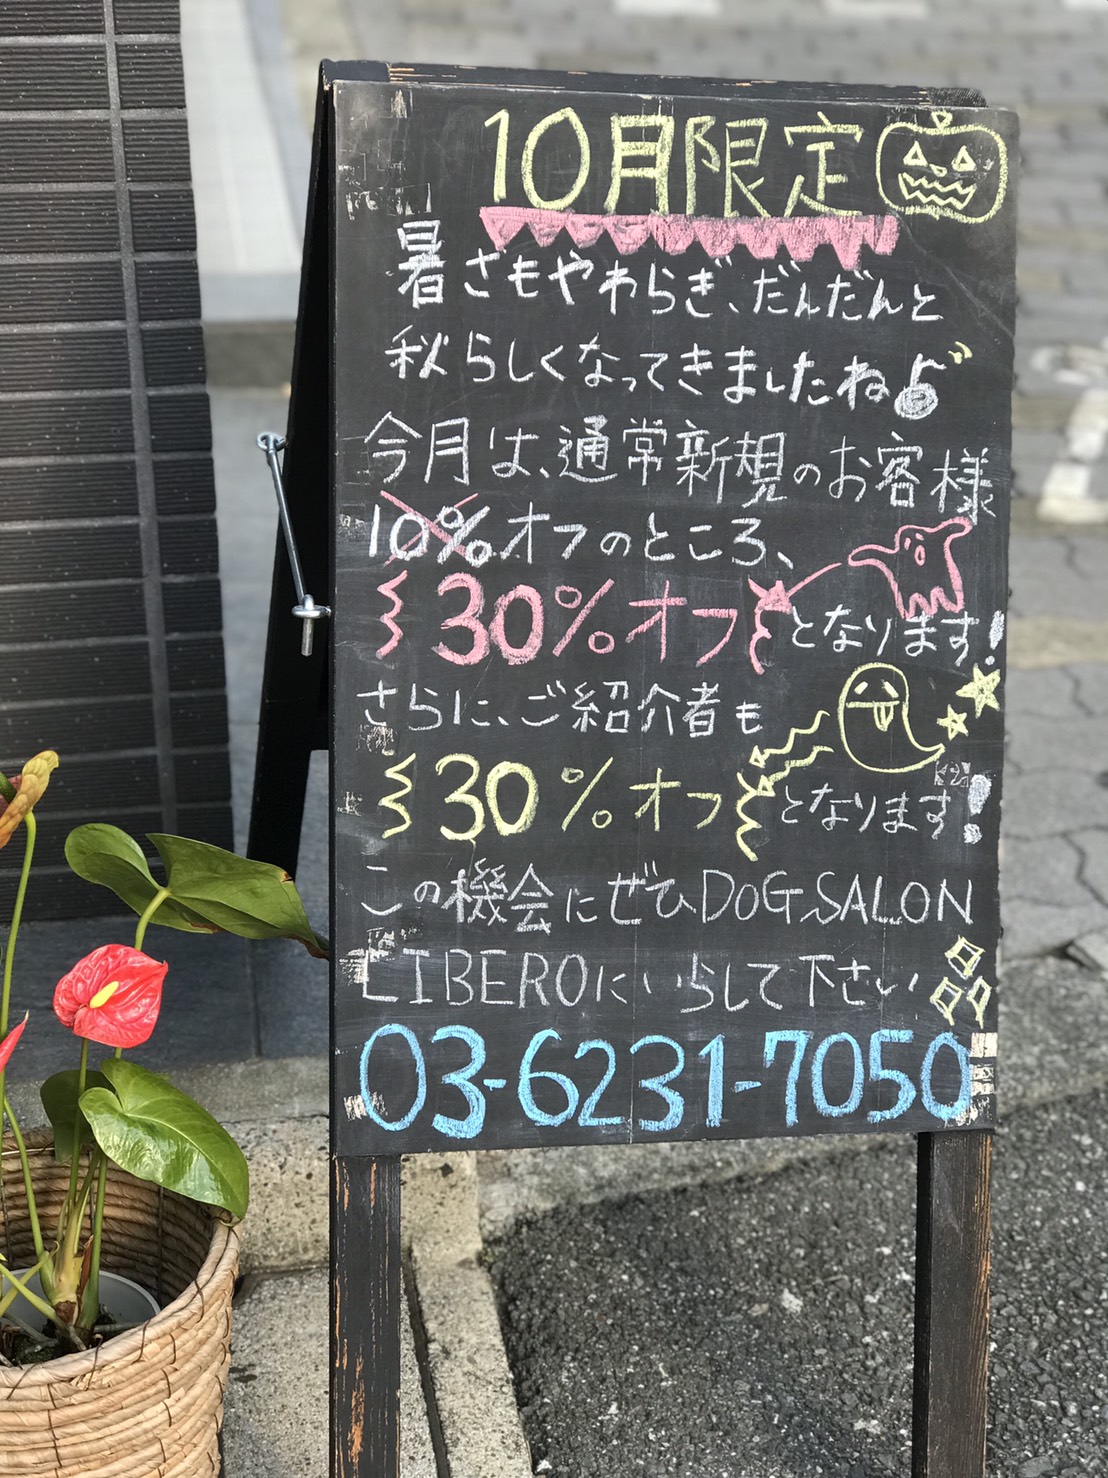 10月限定
暑さもやわらぎ、だんだんと
秋らしくなってきましたね♪
今月は、通常新規のお客様
10%オフのところ、
30%オフとなります!
さらに、ご紹介者も
30%オフとなります!
この機会にぜひDOG SALON
LIBEROにいらして下さい
03-6231-7050